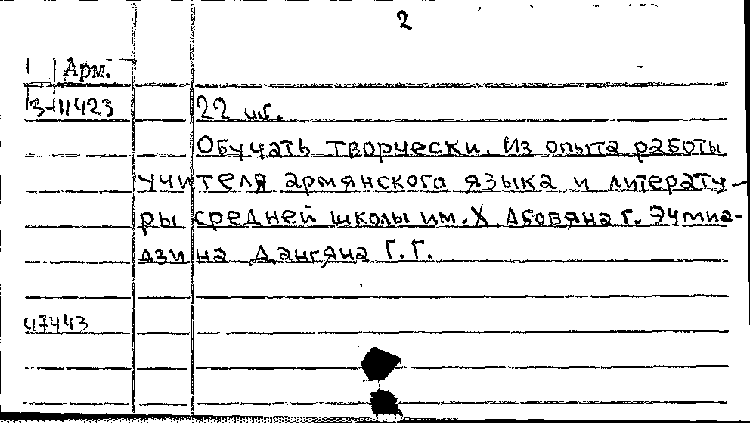 2
Арм.
3-11423
22 иб.
Обучать творчески. Из опыта работы
учителя армянского языка и литерату-
ры средней школы им. Х. Абовяна г. Эчмиа-
дзина Дангяна Г.Г.
47443